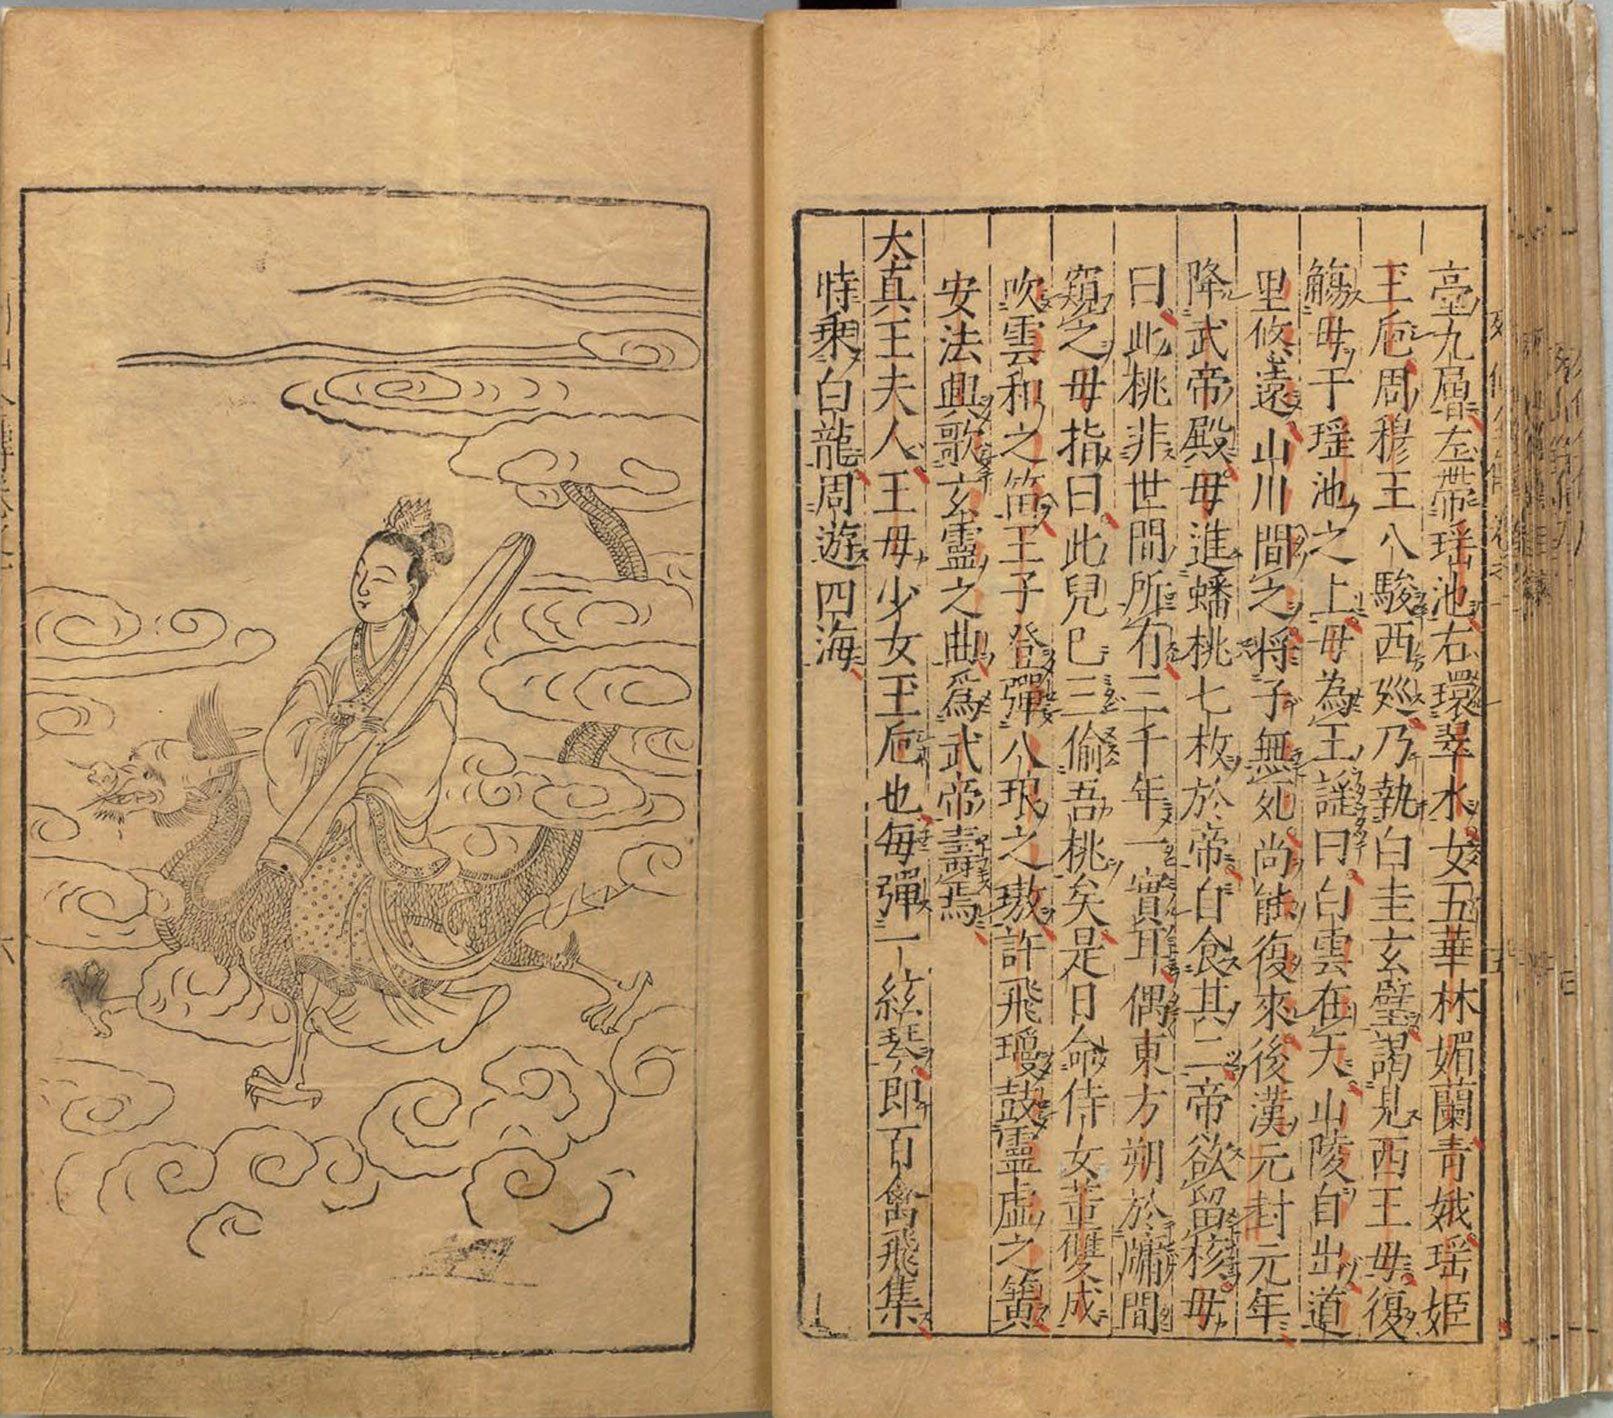 臺九層左帶瑶池右環翠水女五華林媚蘭青娥瑶姬
王巵周穆王八駿西廵乃執白圭玄璧謁見西王母復
觴母于瑶池之上母為王謡曰白雲在天山陵自出道
里悠遠山川間之将子無死尚能復來後漢元封元年
降武帝殿母進蟠桃七枚於帝自食其二帝欲留核母
曰此桃非世間所有三千年一實耳偶東方朔於牖間
窺之母指曰此兒已三偷吾桃矣是日命侍女董雙成
吹雲和之笛王子登彈八琅之璈許飛瓊鼓靈虛之簧
安法興歌玄靈之曲爲武帝壽焉
太真王夫人王母少女玉巵也每彈一絃琴即百禽飛集
時乘白龍周遊四海